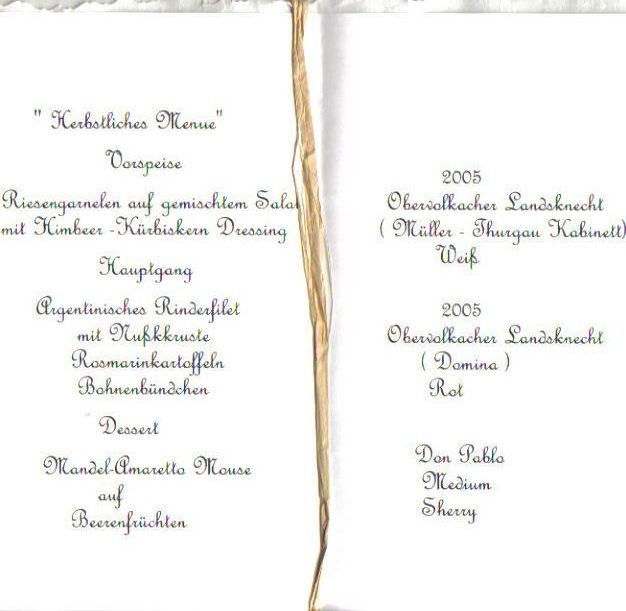 " Herbstliches Menue"
Vorspeise
Riesengarnelen auf gemischtem Salat
mit Himbeer -Kürbiskern Dressing
Hauptgang
Argentinisches Rinderfilet
mit Nußkkruste
Rosmarinkartoffeln
Bohnenbündchen
Dessert
Mandel-Amaretto Mouse
auf
Beerenfrüchten
2005
Obervolkacher Landsknecht
( Müller - Thurgau Kabinett)
Weiß
2005
Obervolkacher Landsknecht
( Domina )
Rot
Don Pablo
Medium
Sherry